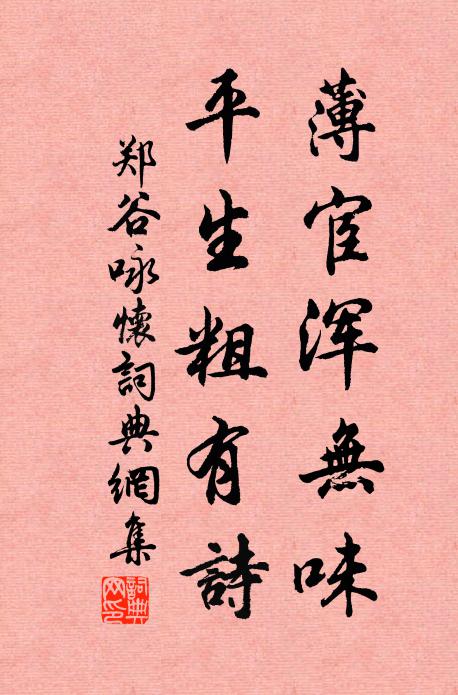 薄宦浑無味
平生粗有詩
郑谷咏懷詞典網集
詞典網印